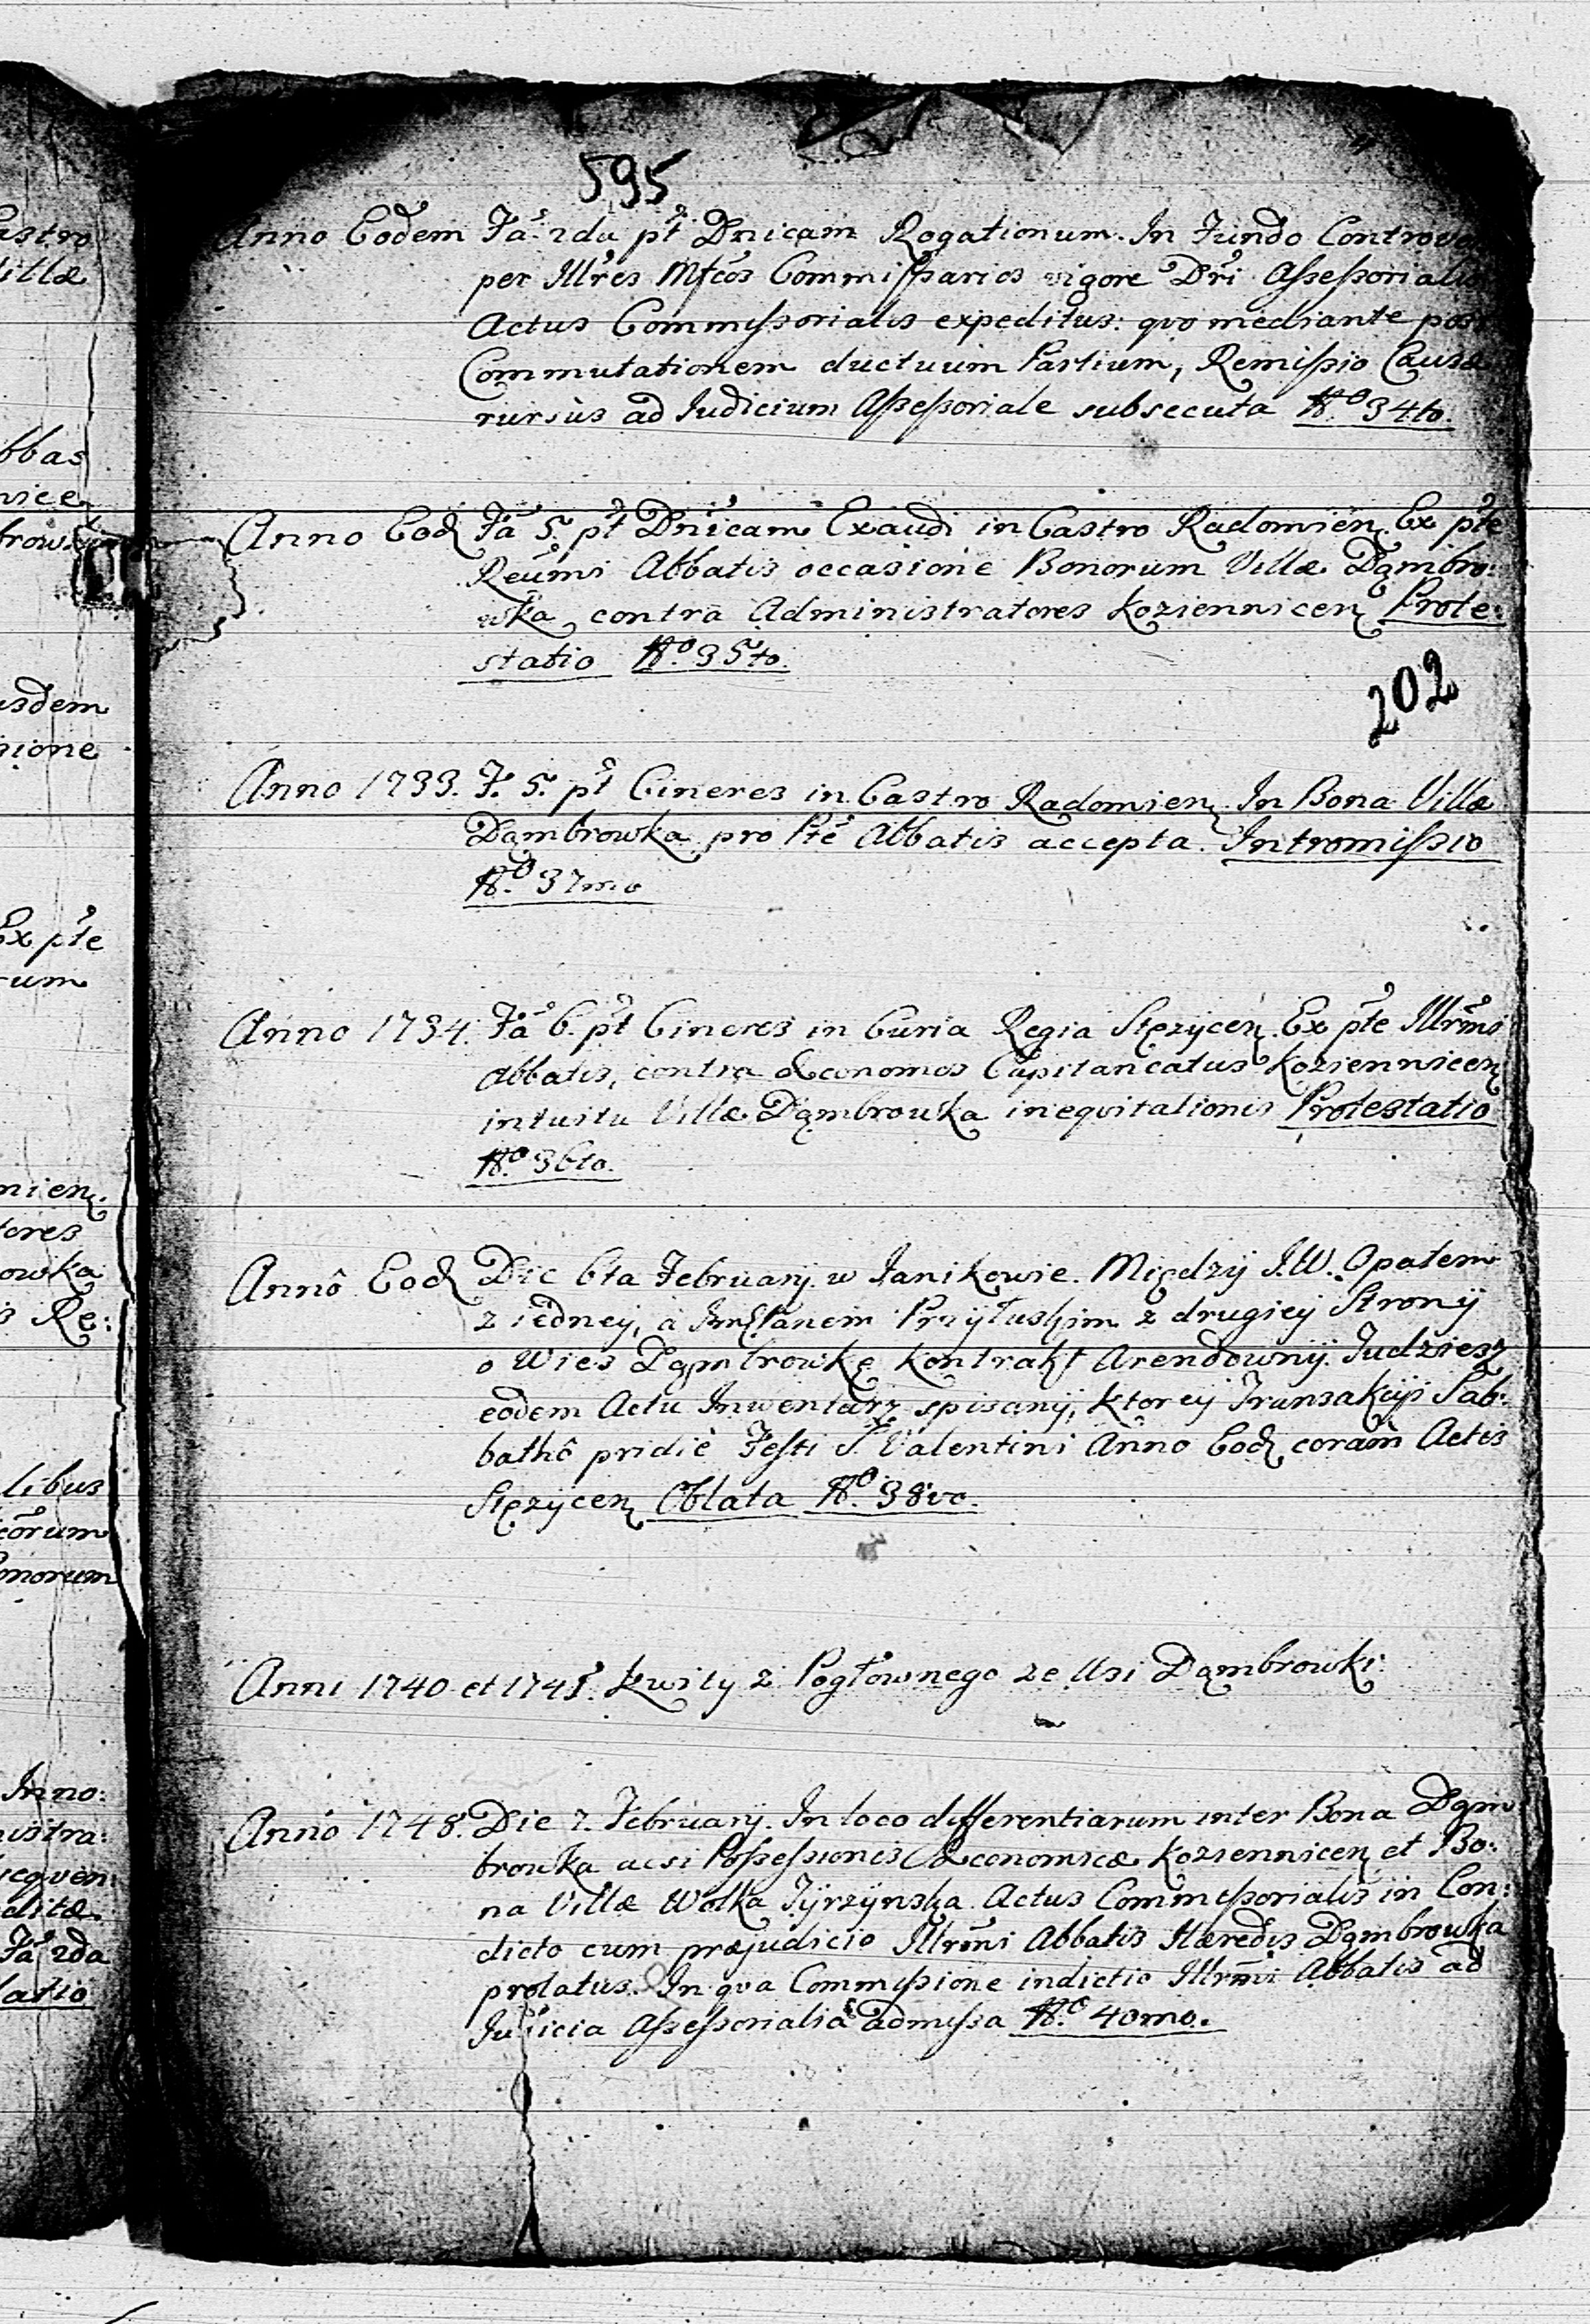 595
Anno Eodem Fã 2da pt Dnicam Rogationum. In Fundo Controver
per Illres Mfcos Commissarios vigore Dri Assessorialis
Actus Commissorialis expeditus: quo mediante post
Commutationem ductuum Partium, Remissio Causæ
rursùs ad Iudicium Assessoriale subsecuta No 34to.
Anno Eod Fã 5. pt Dnicam Exaudi in Castro Radomien. Ex pte
Reumi Abbatis occasione Bonorum Villæ Dąmbro:
wka contra Administratores Koziennicen Prote:
statio No. 35to.
202
Anno 1733. F. 5. pt Cineres in Castro Radomien. In Bona Villæ
Dąmbrowka pro Pte Abbatis accepta. Intromissio
No. 37mo
Anno 1734. Fã 6. pt Cineres in Curia Regia Stęzycen. Ex pte Illrmi
Abbatis, contra Œconomos Capitaneatus Koziennicen
intuitu Villæ Dąmbrowka inequitationis Protestatio
No. 36to.
Annô Eod Die 6ta February. w Ianikowie. Między J.W. Opatem
z iedney, à Panem Przyłuskim z drugiey Strony
o Wies Dąmbrowkę Kontrakt Arendowny. Tudziesz
eodem Actu Inwentarz spisany, ktorey Transakcyi Sab:
bathô pridiè Festi S. Valentini Anno Eod coram Actis
Stęzycen Oblata No. 38vo.
Anni 1740 et 1745. Kwity z Pogłownego ze Wsi Dąmbrowki.
Anno 1748. Die 7. February. In loco differentiarum inter Bona Dąm
browka acsi Possessionis Œconomicæ Koziennicen et Bo:
na Villæ Wolka Tyrzynska Actus Commissorialis in Con:
dicto cum præjudicio Illrmi Abbatis Hæredis Dąmbrowka
prolatus. In qua Commissione indictio Illrmi Abbatis ad
Iudicia Assessorialia admissa No. 40mo.